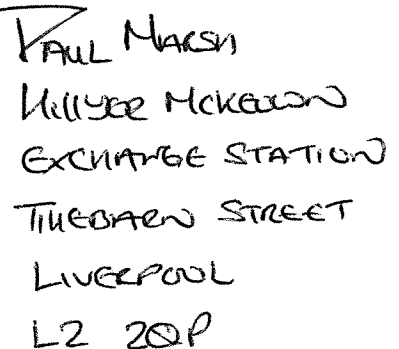 PAUL MARSH
Hillyer McKeown
EXCHANGE STATION
TITHEBARN STREET
LIVERPOOL
L2 2QP